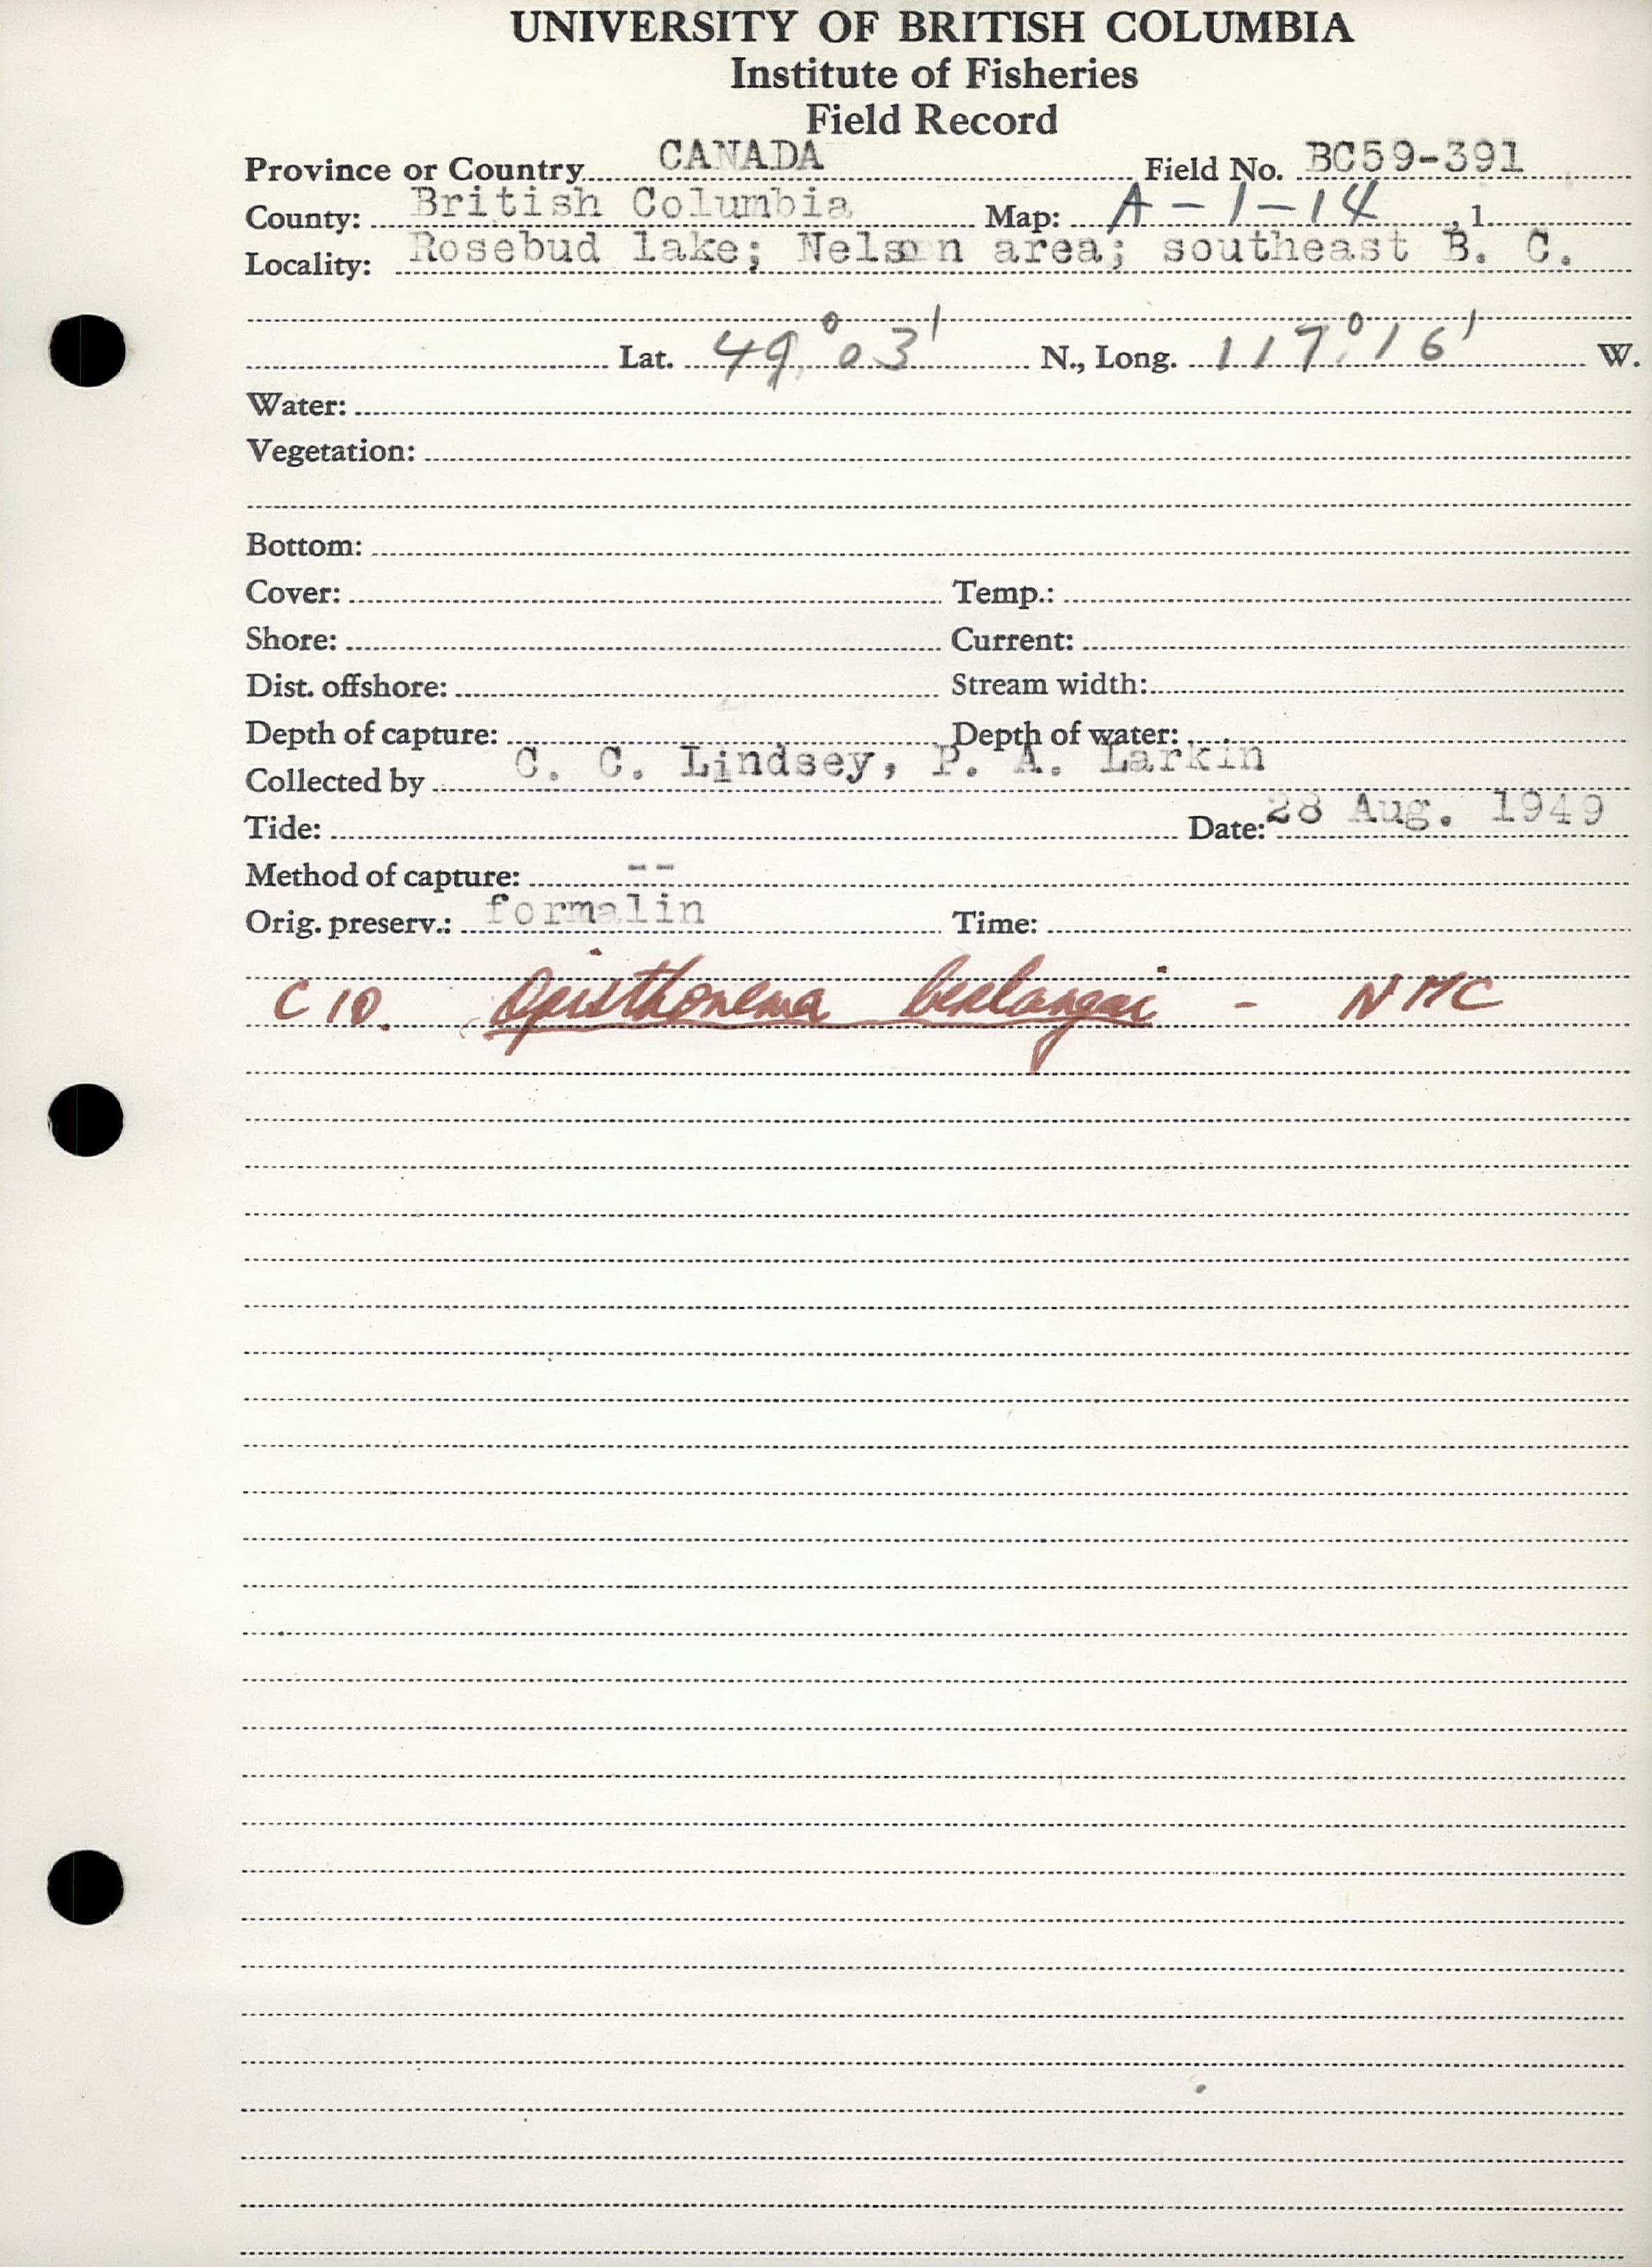 UNIVERSITY OF BRITISH COLUMBIA
Institute of Fisheries
Field Record
Province or Country CANADA Field No. BC59-391
County: British Columbia Map: A-1-14, 1
Locality: Rosebud lake; Nelson area; southeast B. C.
Lat. 49° 03' N., Long. 117° 16' W.
Water:
Vegetation:
Bottom:
Cover: Temp.:
Shore: Current:
Dist. offshore: Stream width:
Depth of capture: Depth of water:
Collected by C. C. Lindsey, P. A. Larkin
Tide: Date: 28 Aug. 1949
Method of capture: --
Orig. preserv.: formalin Time:
C 10. Opisthonema berlangai - NMC